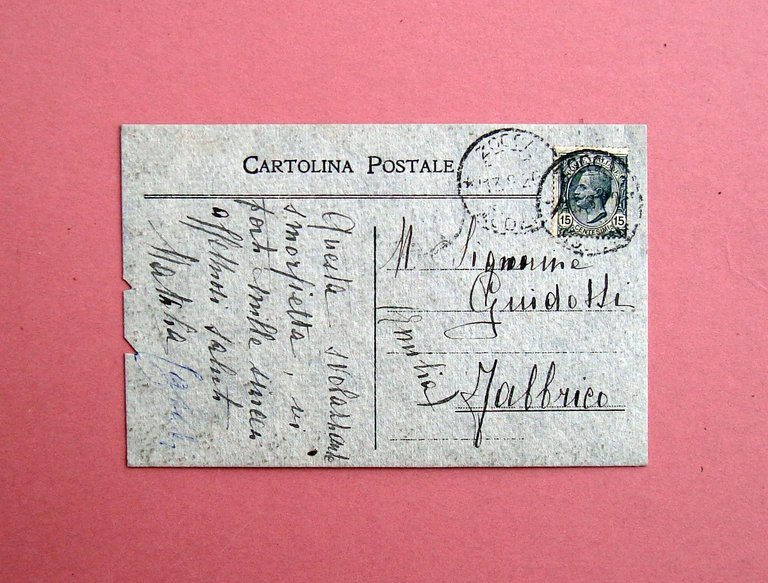 CARTOLINA POSTALE
ZOCCA
15 CENTESIMI 15
Questa svolazzante
smorfietta, vi
porti mille sinceri
affettuosi saluti
Matilde
M Signorine
Guidotti
(Emilia)
Fabbrico